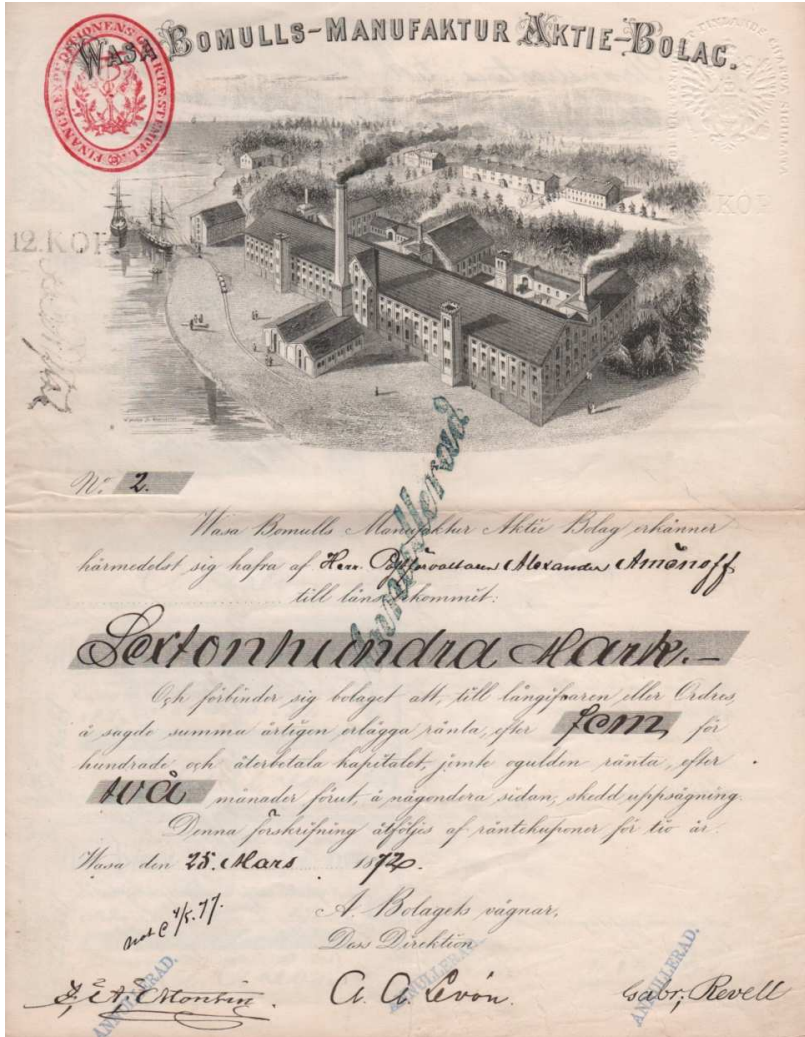 WASA BOMULLS-MANUFAKTUR AKTIE-BOLAG.
FINANCEEXPEDITIONENS CHARTÆ STEMPEL
12. KOP
KOP
No. 2.
Annullerad
Wasa Bomulls Manufaktur Aktie Bolag erkänner
härmedelst sig hafva af Herr Postförvaltaren Alexander Aménoff
till låns bekommit:
Sextonhundra Mark.—
Och förbinder sig bolaget att, till långifvaren eller Ordres,
å sagde summa årligen erlägga ränta, efter fem för
hundrade och återbetala kapitalet, jemte ogulden ränta, efter
två månader förut, å någondera sidan, skedd uppsägning.
Denna förskrifning åtföljes af räntekuponer för tio år.
Wasa den 25. Mars 1872.
4/5.77.
A. Bolagets vägnar,
Dess Direktion
ANNULLERAD.
ANNULLERAD.
ANNULLERAD.
A. A. Levón.
Gabr; Revell